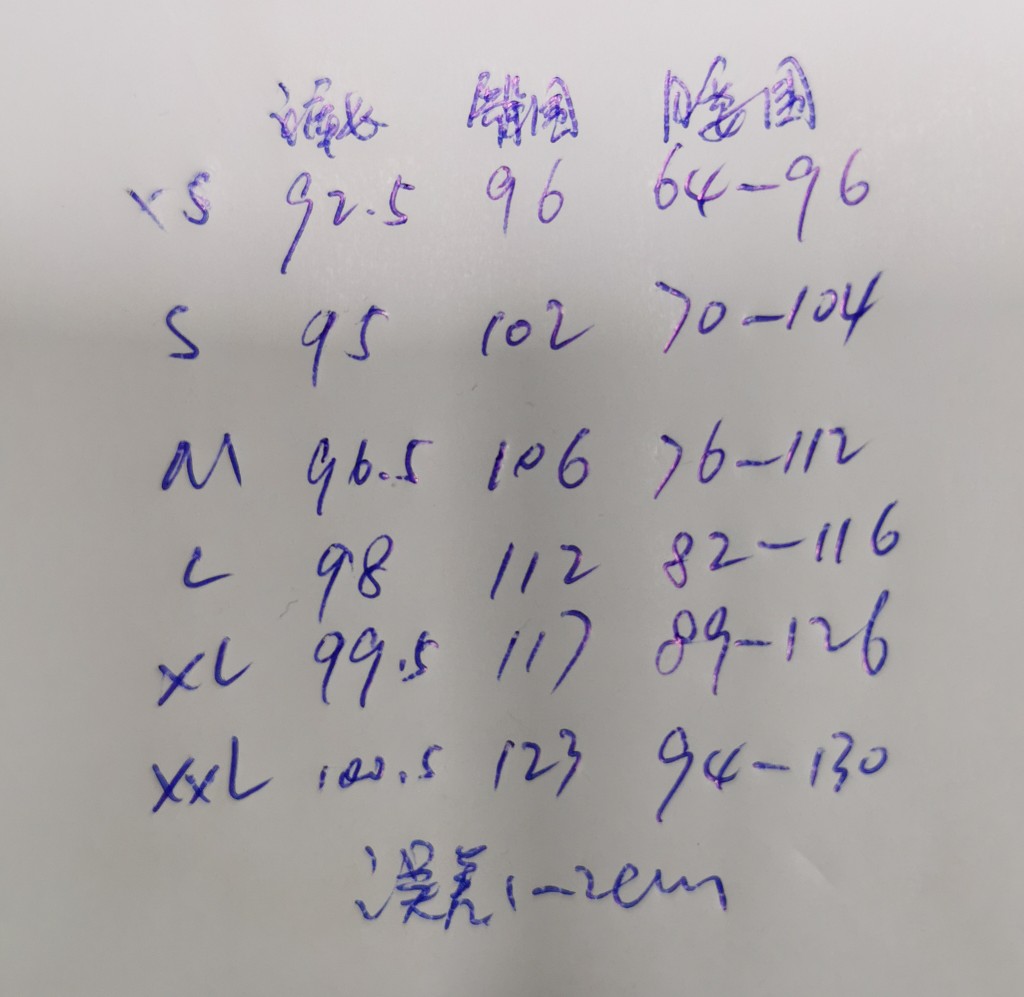 裤长 臀围 腰围
XS 92.5 96 64-96
S 95 102 70-104
M 96.5 106 76-112
L 98 112 82-116
XL 99.5 117 89-126
XXL 100.5 123 94-130
误差1-2cm